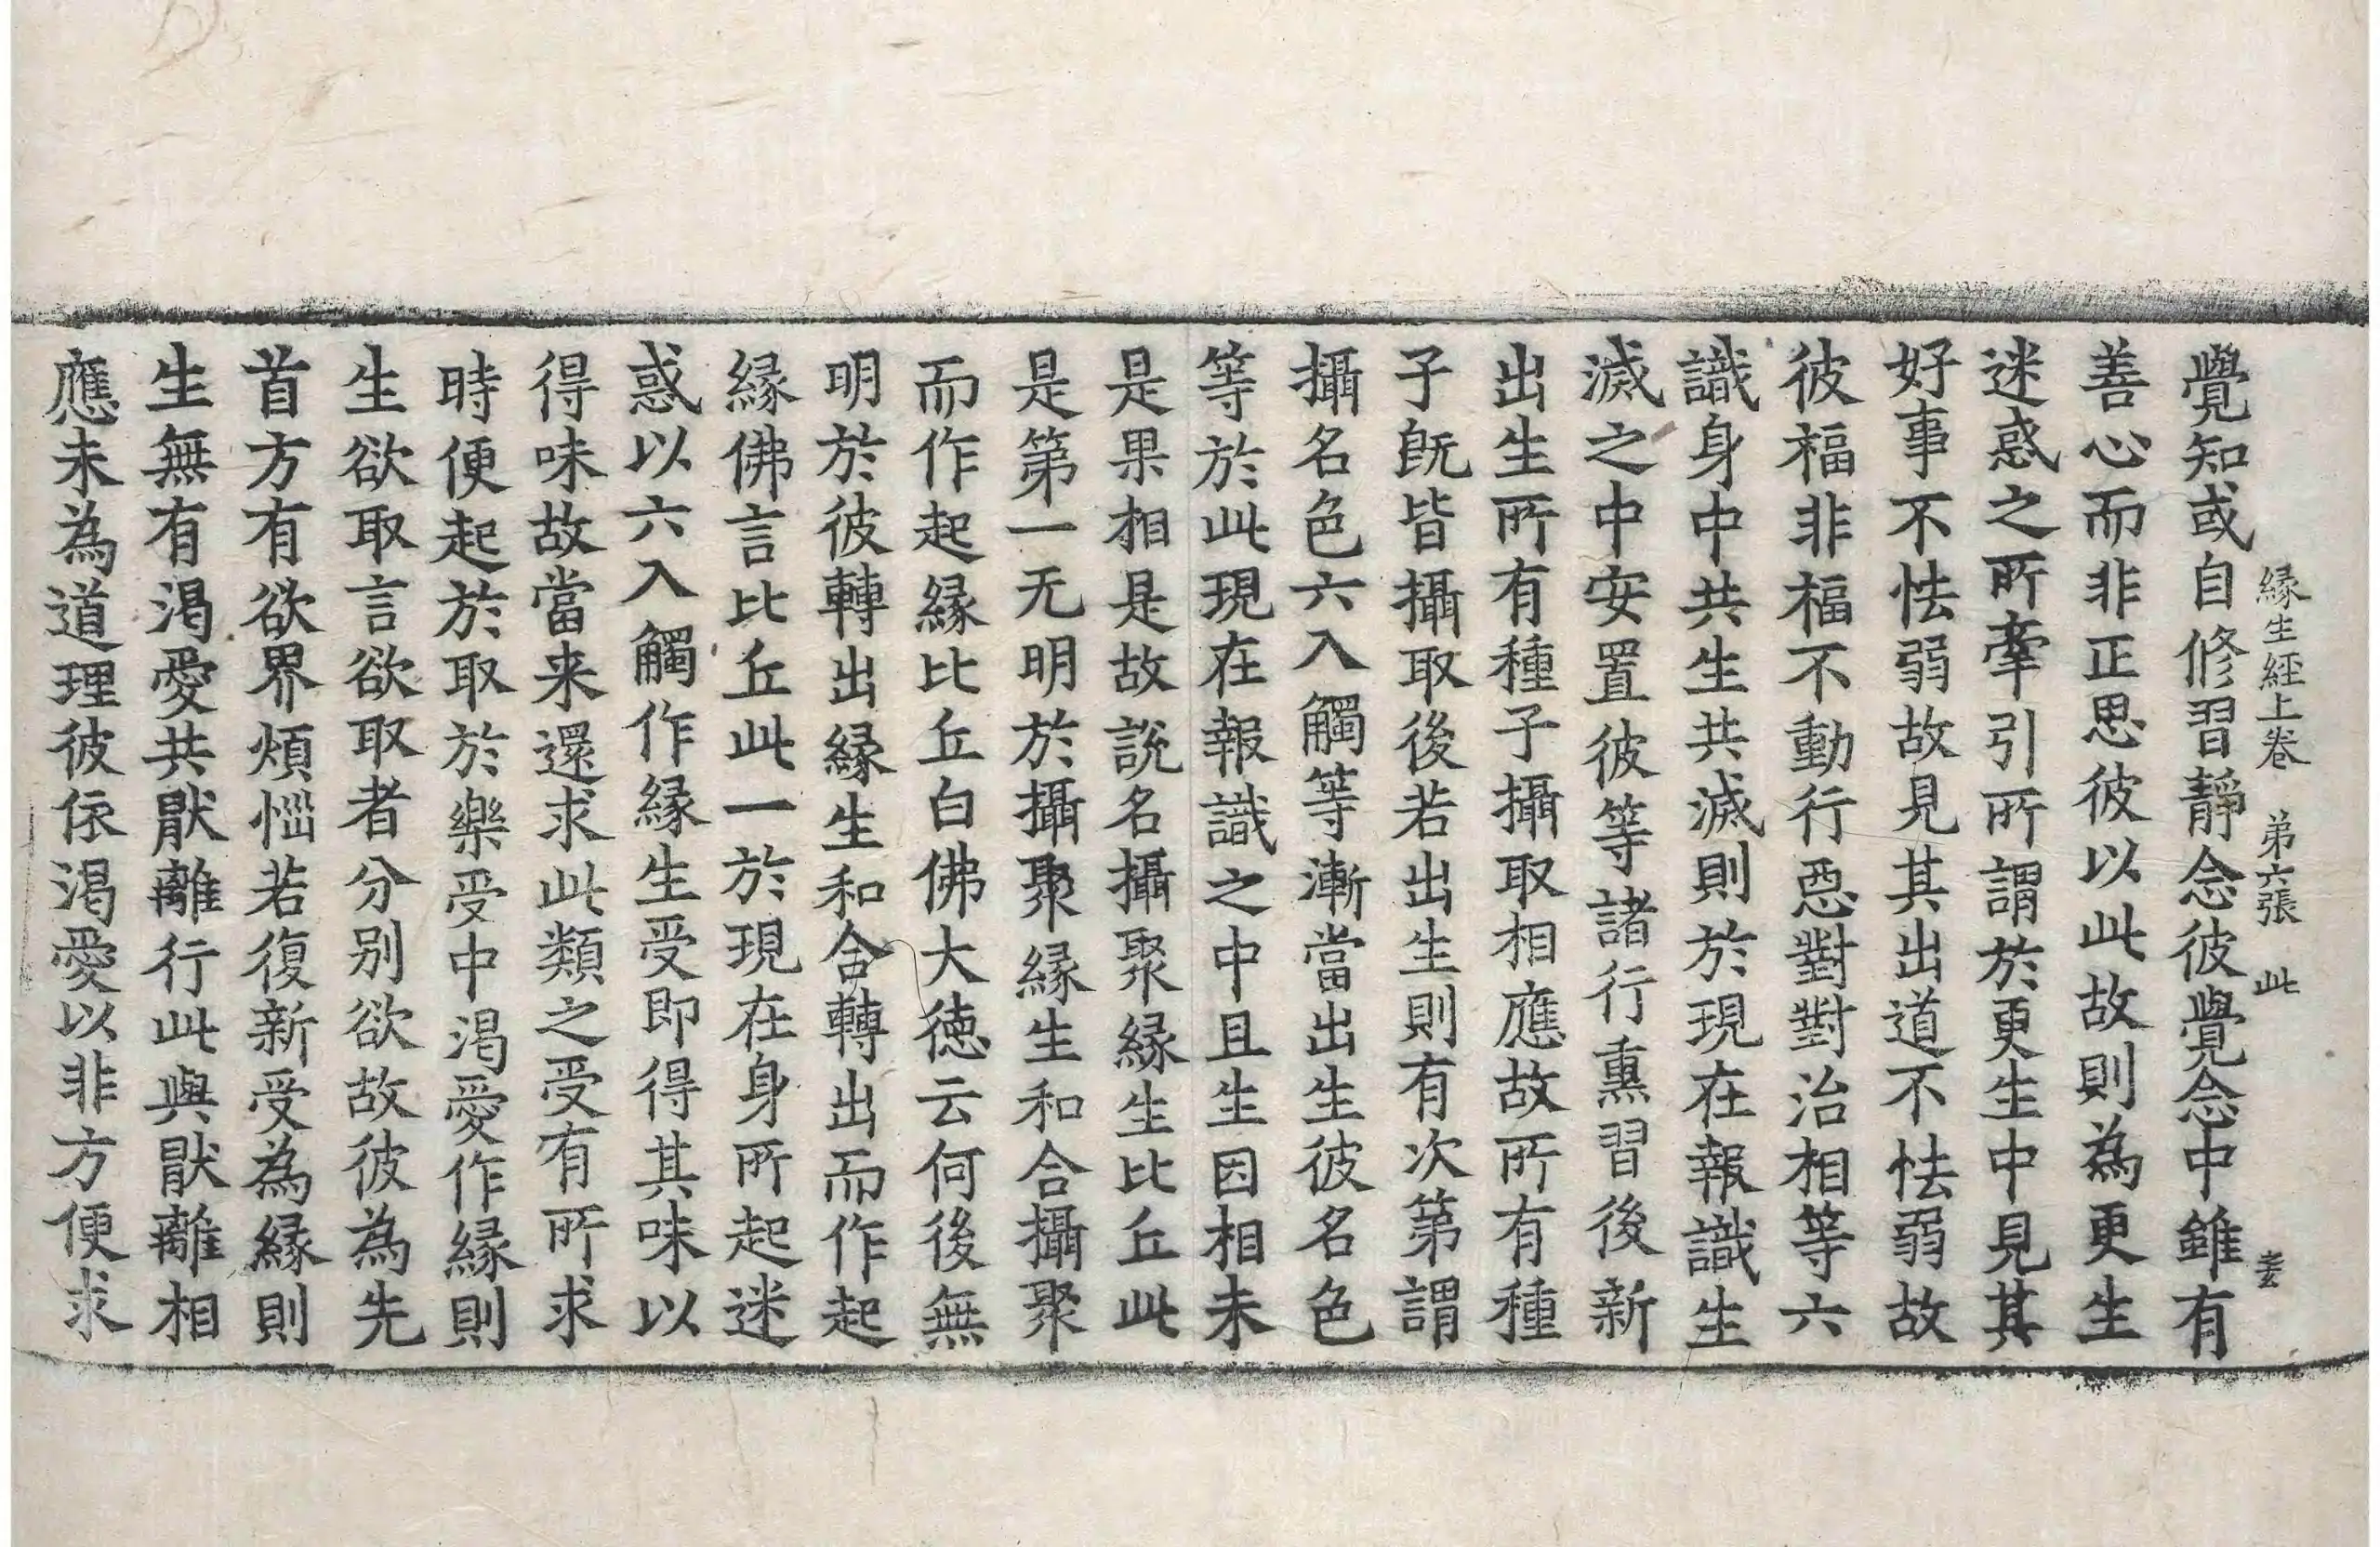 緣生經上卷 弟六張 此
覺知或自修習靜念彼覺念中雖有
善心而非正思彼以此故則為更生
迷惑之所牽引所謂於更生中見其
好事不怯弱故見其出道不怯弱故
彼福非福不動行惡對對治相等六
識身中共生共滅則於現在報識生
滅之中安置彼等諸行熏習後新
出生所有種子攝取相應故所有種
子旣皆攝取後若出生則有次第謂
攝名色六入觸等漸當出生彼名色
等於此現在報識之中且生因相未
是果相是故說名攝聚緣生比丘此
是第一无明於攝聚緣生和合攝聚
而作起緣比丘白佛大德云何後無
明於彼轉出緣生和合轉出而作起
緣佛言比丘此一於現在身所起迷
惑以六入觸作緣生受即得其味以
得味故當来還求此類之受有所求
時便起於取於樂受中渴愛作緣則
生欲取言欲取者分别欲故彼為先
首方有欲界煩惱若復新受為緣則
生無有渴愛共猒離行此與猒離相
應未為道理彼依渴愛以非方便求